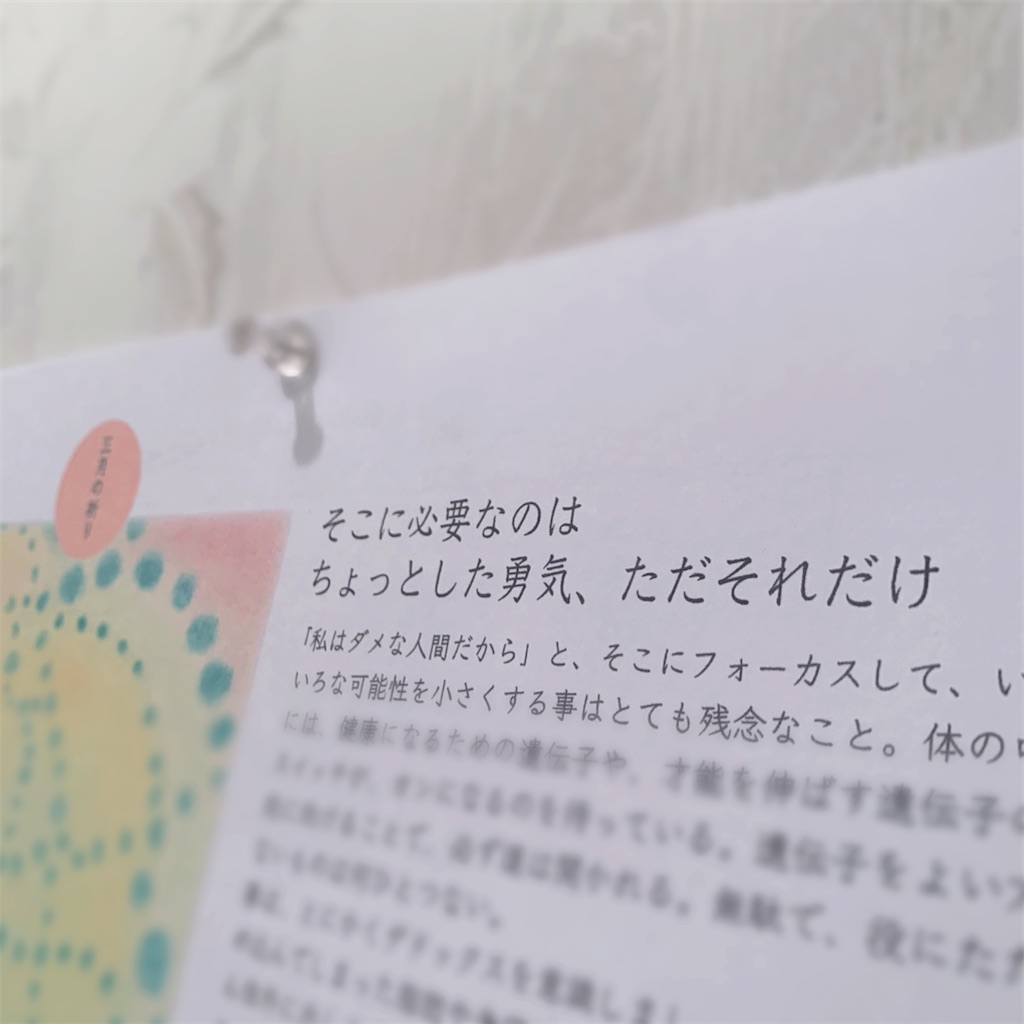 三月の祈り
そこに必要なのは
ちょっとした勇気、ただそれだけ
「私はダメな人間だから」と、そこにフォーカスして、い
いろな可能性を小さくする事はとても残念なこと。体の中
には、健康になるための遺伝子や、才能を伸ばす遺伝子の
スイッチが、オンになるのを待っている。遺伝子をよいス
向に向けることで、必ず道は開かれる。無駄で、役にたた
ないものは何ひとつない。
事は、とにかくデトックスを意識しまし
め込んでしまった脂肪や